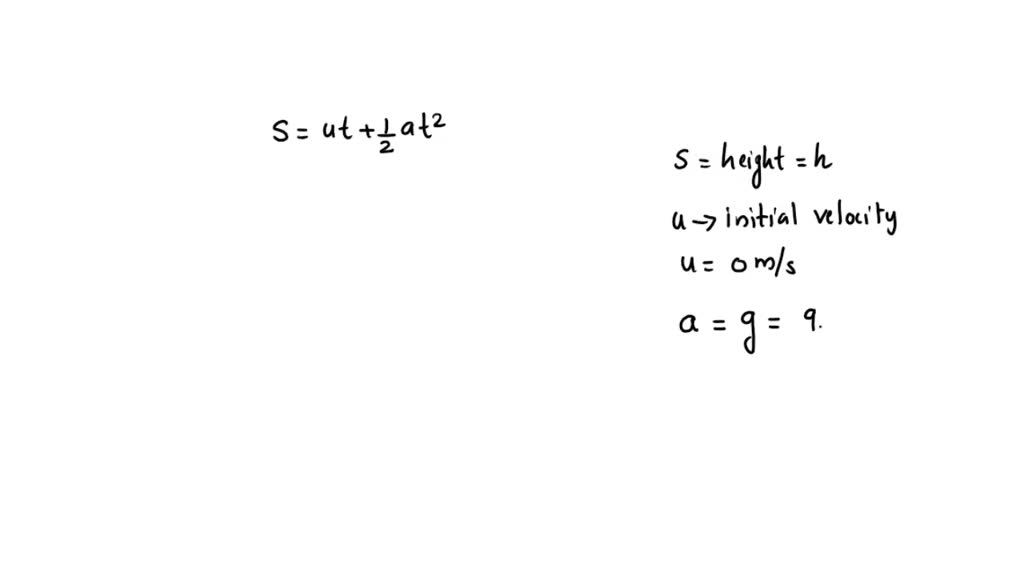 S = ut + 1/2 at²
S = height = h
u → initial velocity
u = 0 m/s
a = g = 9.